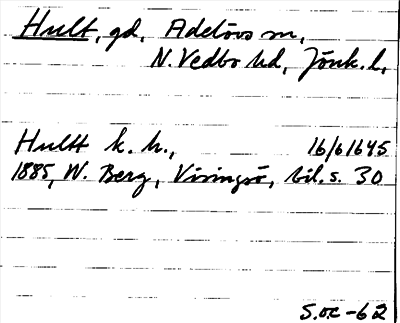 Hult, gd, Adelövs sn,
N. Vedbo hd, Jönk. l,
Hultt k. h., 16/6 1645
1885, W. Berg, Visingsö, bil. s. 30
S.OC-62